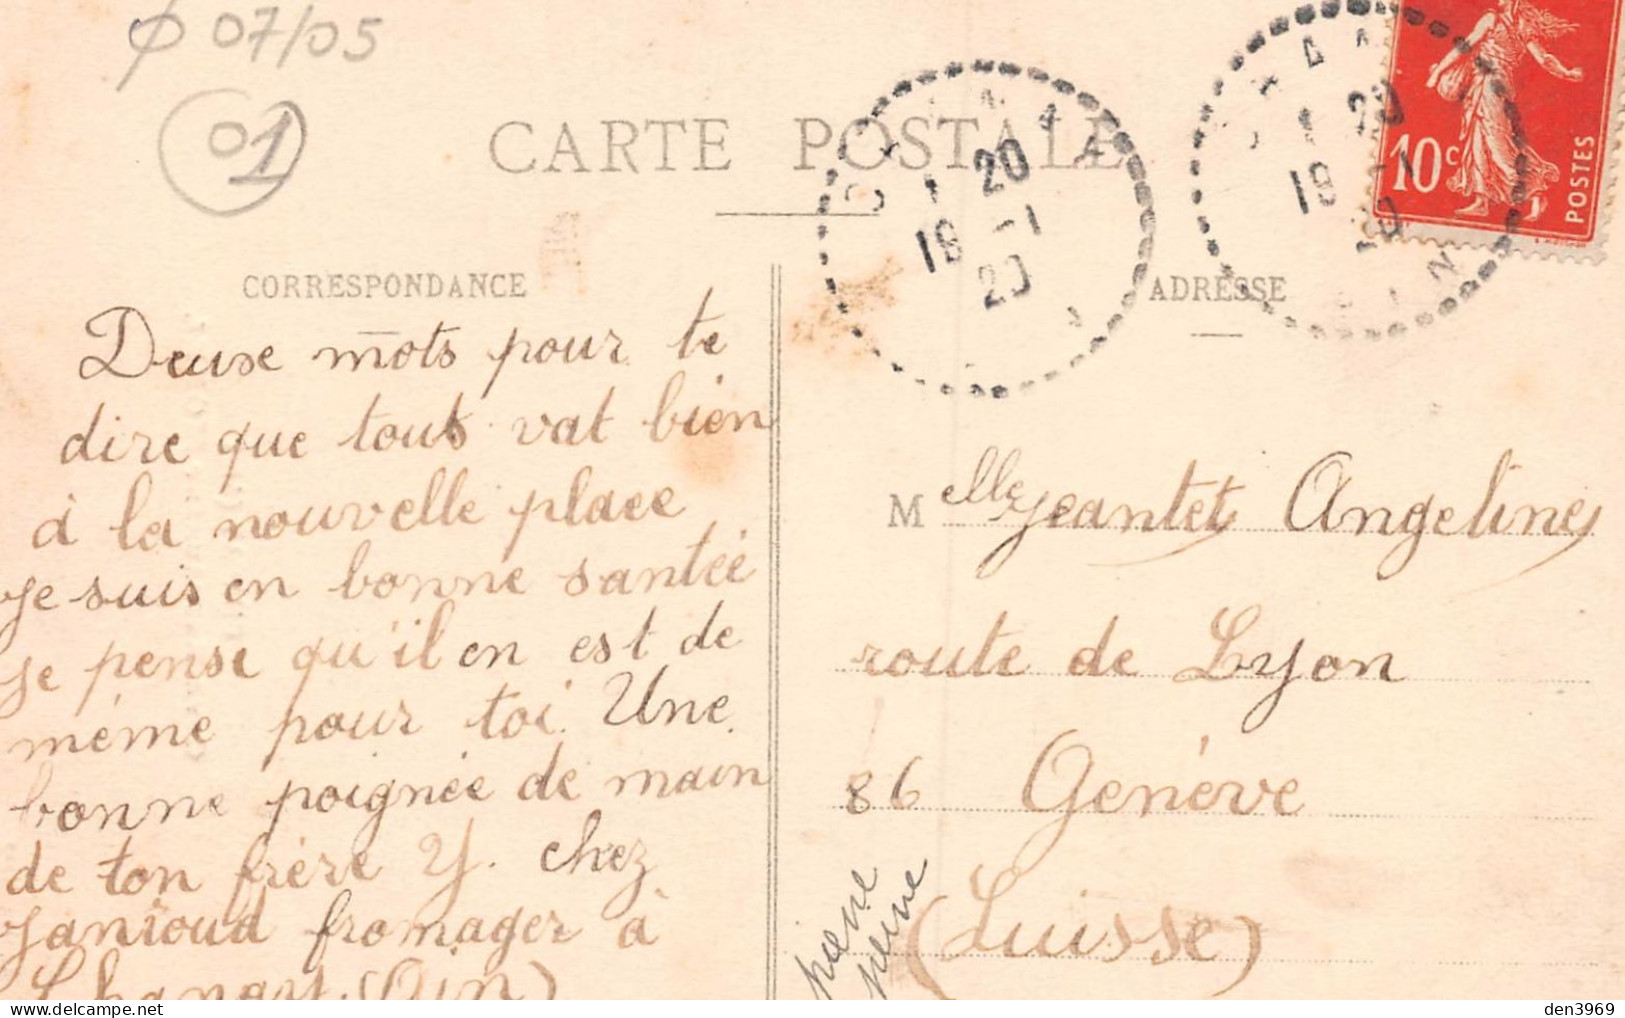 φ 07/05
01
CARTE POSTALE
1 20
18 -1
20
1 20
18 -1
20
10c
POSTES
CORRESPONDANCE
Deuxe mots pour te
dire que tout vat bien
à la nouvelle place
je suis en bonne santée
je pense qu'il en est de
même pour toi. Une
bonne poignée de main
de ton frère Y. chez
Janioud fromager à
Chanay (Ain)
ADRESSE
Melle Jeantet Angeline
route de Lyon
86 Genève
(Suisse)
den3969